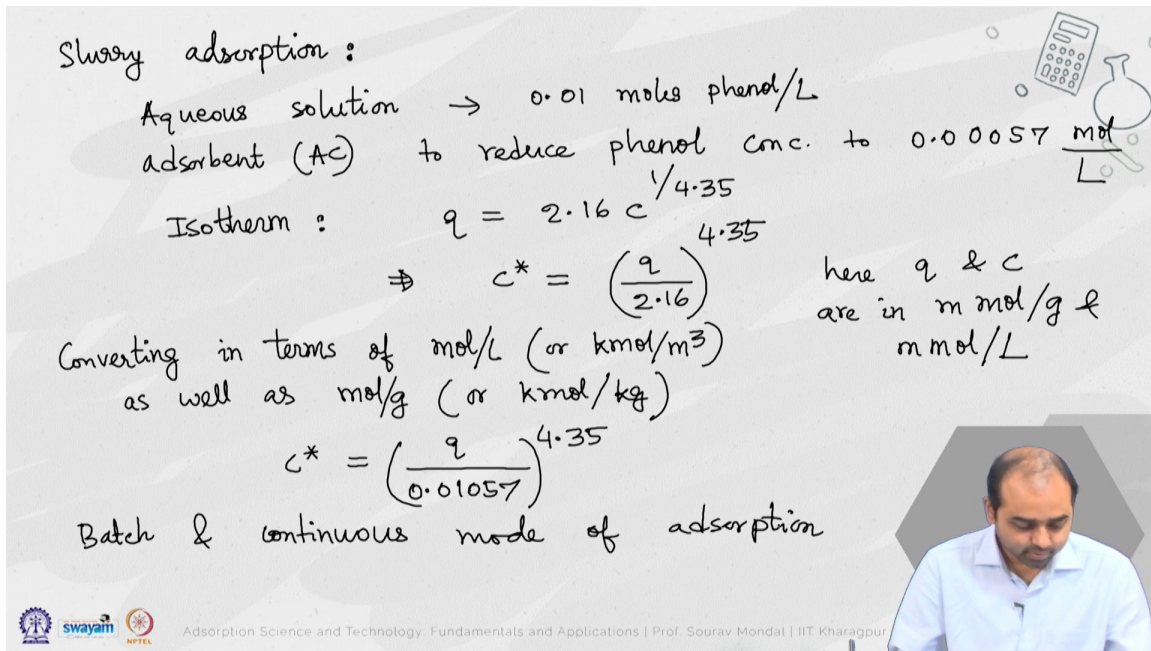 Slurry adsorption :
Aqueous solution → 0.01 moles phenol/L
adsorbent (AC) to reduce phenol conc. to 0.00057 mol/L
Isotherm : q = 2.16 c^(1/4.35)
⇒ c* = (q/2.16)^4.35
here q & c
are in m mol/g &
m mol/L
Converting in terms of mol/L (or kmol/m³)
as well as mol/g (or kmol/kg)
c* = (q/0.01057)^4.35
Batch & continuous mode of adsorption
swayam
NPTEL
Adsorption Science and Technology: Fundamentals and Applications | Prof. Sourav Mondal | IIT Kharagpur